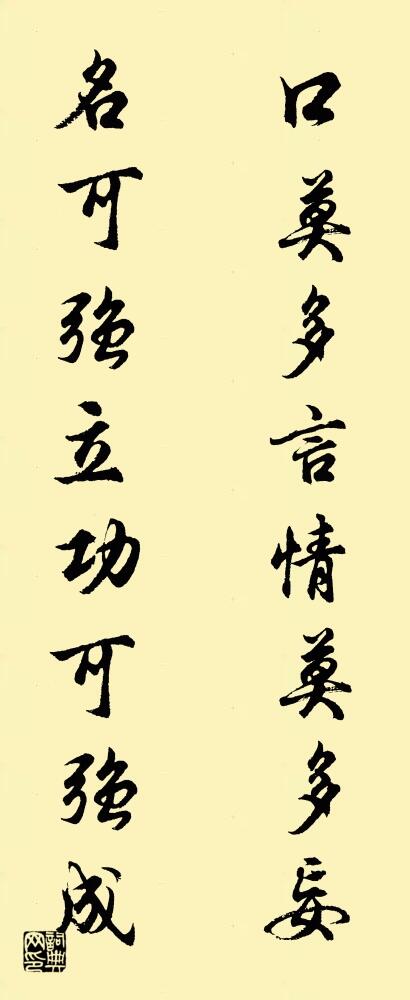 口莫多言情莫多妄
名可强立功可强成
詞典网印